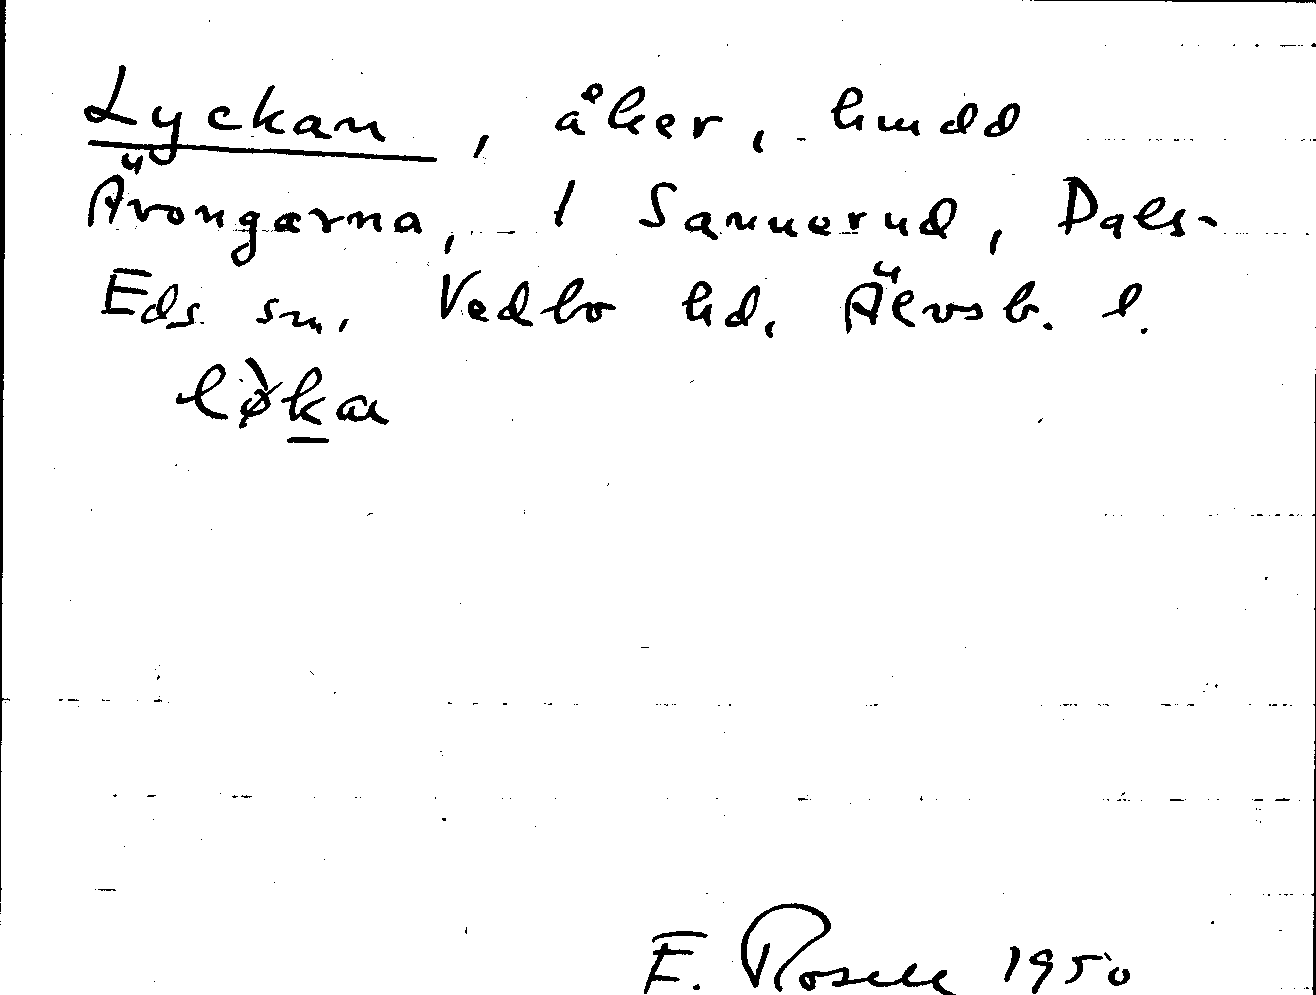 Lyckan, åker, hmdd
Ärongärna, 1 Sannerud, Dals-
Eds sn. Vedbo hd. Älvsb. l.
lø̀ka
E. Rosell 1950